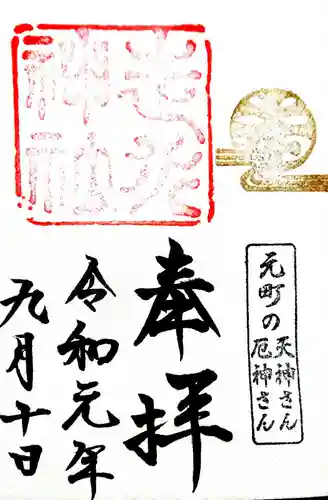 元町の
天神さん
厄神さん
奉拝
令和元年
九月十日
走水
神社